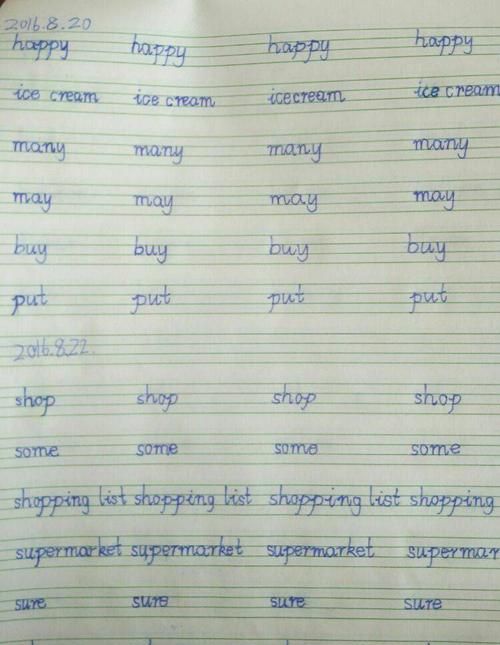 2016.8.20
happy happy happy happy
ice cream ice cream icecream ice cream
many many many many
may may may may
buy buy buy buy
put put put put
2016.8.22.
shop shop shop shop
some some some some
shopping list shopping list shopping list shopping
supermarket supermarket supermarket supermar
sure sure sure sure